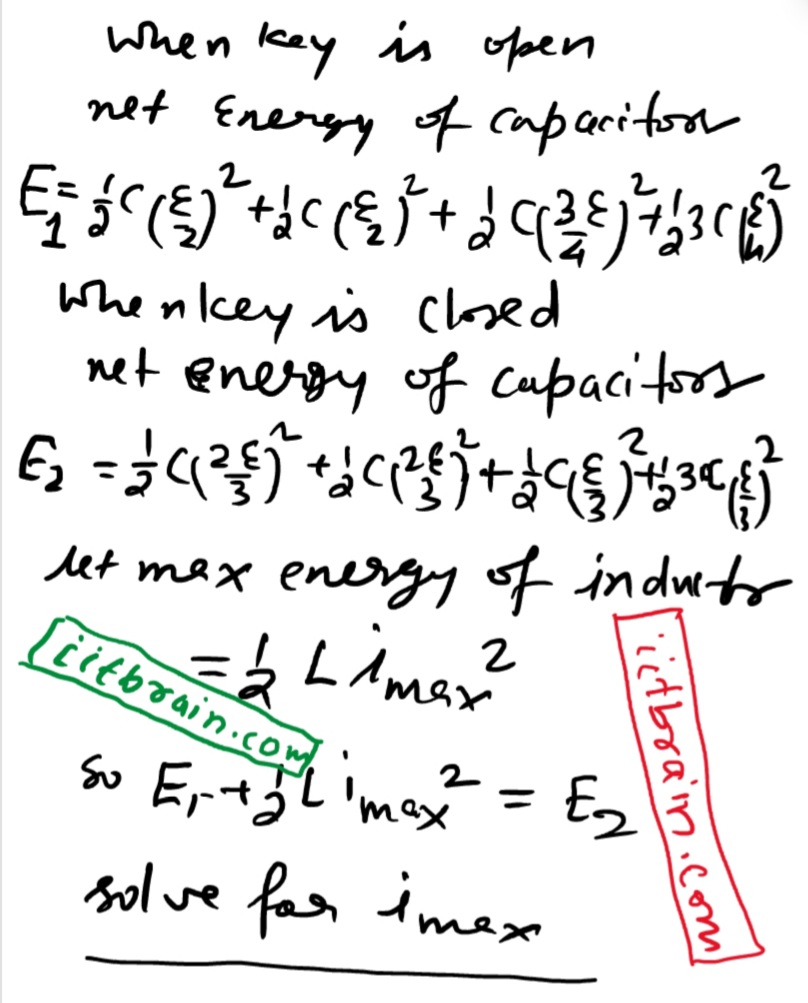 when key is open
net Energy of capacitor
E₁ = ½C(ε/2)² + ½C(ε/2)² + ½C(3ε/4)² + ½3C(ε/4)²
When key is closed
net energy of capacitors
E₂ = ½C(2ε/3)² + ½C(2ε/3)² + ½C(ε/3)² + ½3C(ε/3)²
let max energy of inductor
= ½ L i max²
iitbrain.com
iitbrain.com
so E₁ + ½ L i max² = E₂
solve for i max